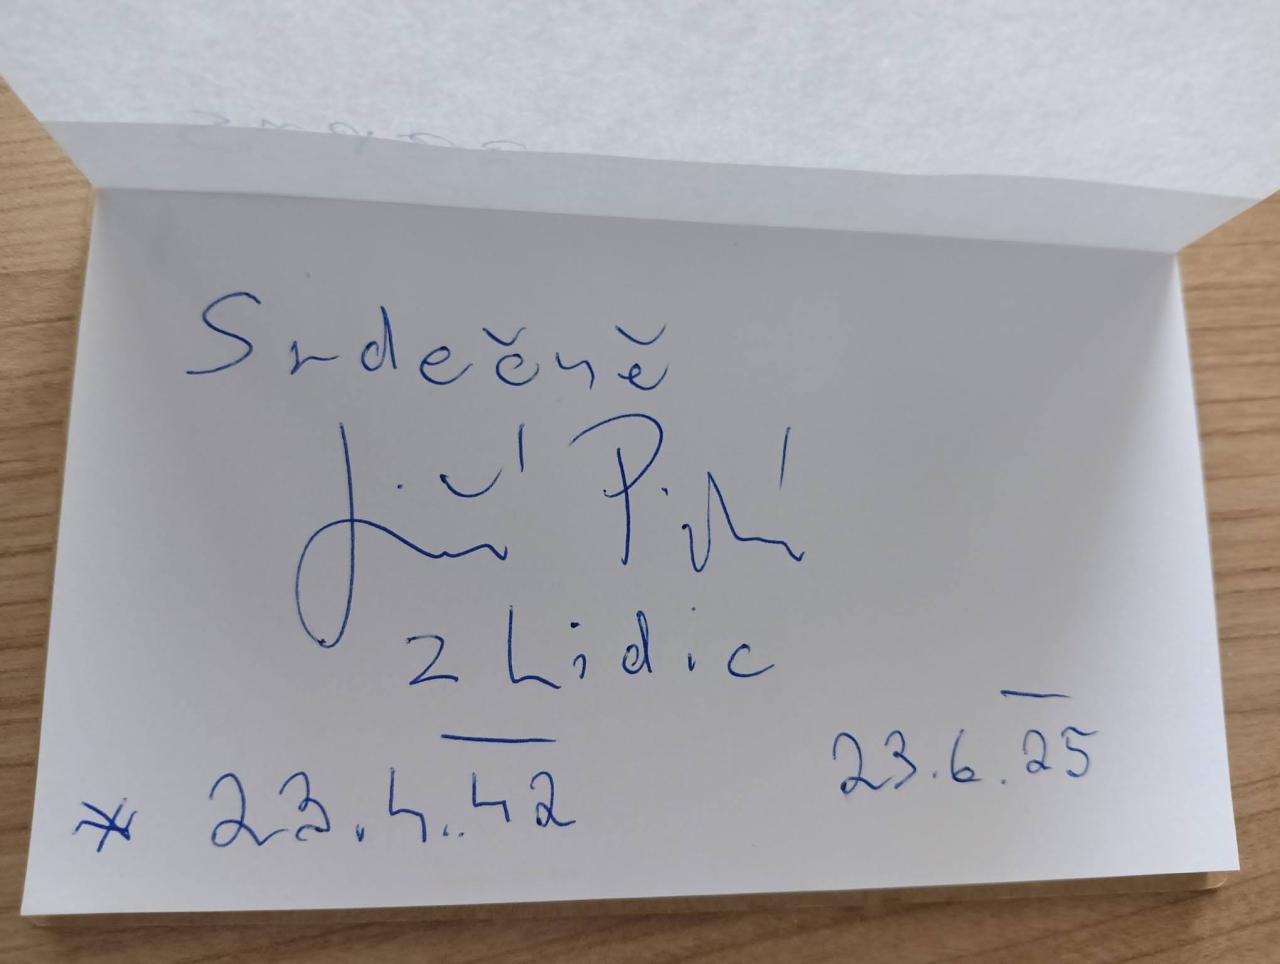 Srdečně
Jiří
z Lidic
* 23.4.42
23.6.25